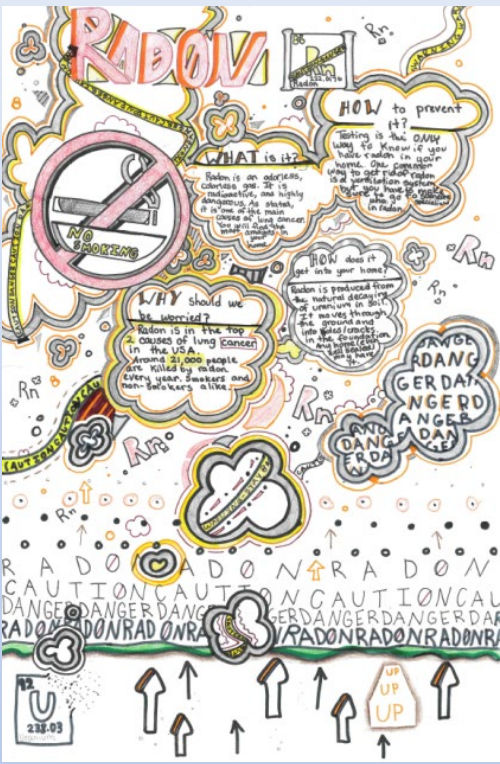 RADON
86
Rn
Radon
Rn
HOW to prevent
it?
Testing is the ONLY
way to know if you
have radon in your
home. One common
way to get rid of radon
is a ventilation system,
but you have to make
sure to go to
who
in radon.
WHAT is it?
Radon is an odorless,
colorless gas. It is
radioactive, and highly
dangerous. As stated,
it is one of the main
causes of lung cancer.
You will find the
most amounts in
your
home.
NO
SMOKING
HOW does it
get into your home?
Radon is produced from
the natural decaying
of uranium in soil.
It moves through
the ground and
into
in the foundation.
Any home, even
well sealed
may have
it.
Rn
Rn
WHY should we
be worried?
Radon is in the top
2 causes of lung cancer
in the USA.
Around 21,000 people
are killed by radon
every year. Smokers and
non-smokers alike.
Rn
Rn
Rn
DANGER
GERDAN
NGERD
ANGER
DAN
DANG
ERDA
CAUTION
Rn
RADON RADON RADON
CAUTIONCAUTIONCAUTIONCAU
DANGERDANGERDANG GERDANGERDANGERDA
RADONRADONRA RADONRADONRADON
92
U
238.03
Uranium
UP
UP
UP